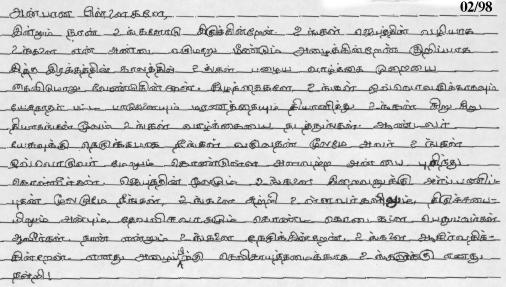 02/98
அன்பான பிள்ளைகளே,
இன்றும் நான் உங்களோடு இருக்கின்றேன். உங்கள் ஜெபத்தின் வழியாக
உங்களை என் அண்டை வரும்படி மீண்டும் அழைக்கின்றேன். குறிப்பாக
இந்த இரக்கத்தின் காலத்தில் உங்கள் பழைய வாழ்க்கை முறையை
கைவிடுமாறு வேண்டுகின்றேன். குழந்தைகளே, உங்கள் ஒவ்வொருவருக்காகவும்
யேசுநாதர் பட்ட பாடுகளையும் மரணத்தையும் தியானித்து உங்கள் சிறு சிறு
தியாகங்கள் மூலம் உங்கள் வாழ்க்கையை நடத்துங்கள். ஆண்டவர்
யேசுவுக்கு நெருக்கமாக நீங்கள் வருவதன் மூலமே அவர் உங்கள்
ஒவ்வொருவர் மேலும் கொண்டுள்ள அளவற்ற அன்பை புரிந்து
கொள்வீர்கள். ஜெபத்தின் மூலமும் உங்களை இறைவனுக்கு அர்ப்பணிப்
பதன் மூலமுமே நீங்கள், உங்களை சுற்றி உள்ளவர்களிலும், திருச்சபை-
யிலும் அன்பும், தேவவிசுவாசமும் கொண்ட கொடைகளை பெறுபவர்கள்
ஆவீர்கள். நான் என்றும் உங்களை நேசிக்கின்றேன். உங்களை ஆசீர்வதிக்-
கின்றேன். எனது அழைப்பிற்கு செவிசாய்த்தமைக்காக உங்களுக்கு எனது
நன்றி!